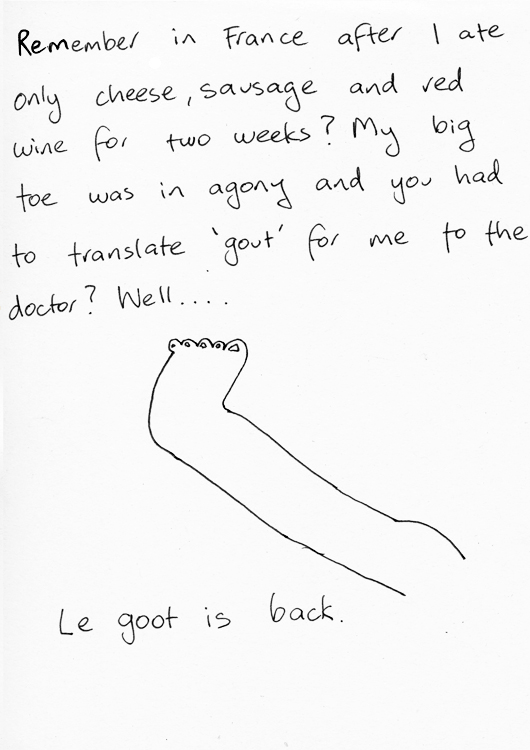 Remember in France after I ate
only cheese, sausage and red
wine for two weeks? My big
toe was in agony and you had
to translate 'gout' for me to the
doctor? Well....
Le goot is back.